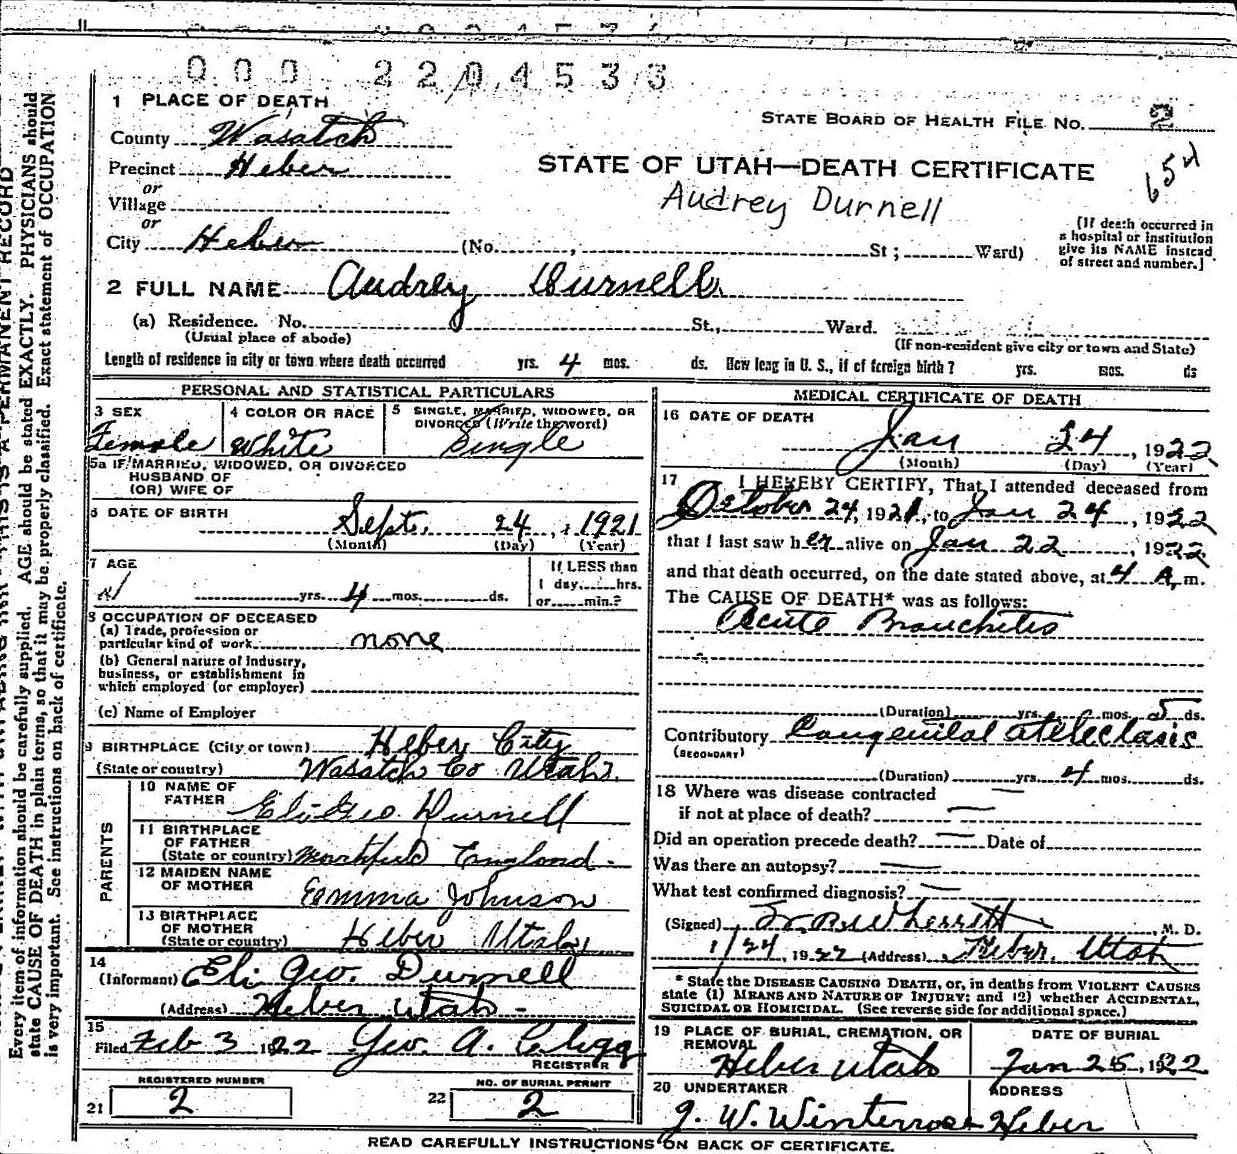 000 2204533
1 PLACE OF DEATH
STATE BOARD OF HEALTH FILE NO. 2
County Wasatch
Precinct Heber
STATE OF UTAH—DEATH CERTIFICATE
654
or
Village
Audrey Durnell
or
City Heber (No. , St ; Ward)
(If death occurred in a hospital or institution give its NAME instead of street and number.]
2 FULL NAME Audrey Durnell
(a) Residence. No. St., Ward.
(Usual place of abode)
(If non-resident give city or town and State)
Length of residence in city or town where death occurred yrs. 4 mos. ds. How long in U. S., if of foreign birth ? yrs. mos. ds
PERSONAL AND STATISTICAL PARTICULARS
3 SEX
Female
4 COLOR OR RACE
White
5 SINGLE, MARRIED, WIDOWED, OR DIVORCED (Write the word)
Single
5a IF MARRIED, WIDOWED, OR DIVORCED
HUSBAND OF
(OR) WIFE OF
6 DATE OF BIRTH Sept. 24, 1921
(Month) (Day) (Year)
7 AGE
yrs. 4 mos. ds.
If LESS than
1 day, hrs.
or min.?
8 OCCUPATION OF DECEASED
(a) Trade, profession or
particular kind of work none
(b) General nature of industry,
business, or establishment in
which employed (or employer)
(c) Name of Employer
9 BIRTHPLACE (City or town) Heber City
(State or country) Wasatch Co Utah.
PARENTS
10 NAME OF
FATHER Eli Geo Durnell
11 BIRTHPLACE
OF FATHER
(State or country) England.
12 MAIDEN NAME
OF MOTHER Emma Johnson
13 BIRTHPLACE
OF MOTHER
(State or country) Heber Utah
14
(Informant) Eli Geo. Durnell
(Address) Heber Utah -
15
Filed Feb 3 1922 Geo. A. Clegg
REGISTRAR
REGISTERED NUMBER
21 2
NO. OF BURIAL PERMIT
22 2
MEDICAL CERTIFICATE OF DEATH
16 DATE OF DEATH
Jan 24, 1922
(Month) (Day) (Year)
17 I HEREBY CERTIFY, That I attended deceased from
October 24, 1921, to Jan 24, 1922
that I last saw her alive on Jan 22, 1922
and that death occurred, on the date stated above, at 4 A. m.
The CAUSE OF DEATH* was as follows:
Acute Bronchitis
(Duration) yrs. mos. 5 ds.
Contributory Congenital atelectasis
(SECONDARY)
(Duration) yrs. 4 mos. ds.
18 Where was disease contracted
if not at place of death?
Did an operation precede death? Date of
Was there an autopsy?
What test confirmed diagnosis?
(Signed) Wherritt, M. D.
1/24, 1922 (Address) Heber, Utah
* State the DISEASE CAUSING DEATH, or, in deaths from VIOLENT CAUSES
state (1) MEANS AND NATURE OF INJURY; and (2) whether ACCIDENTAL,
SUICIDAL OR HOMICIDAL. (See reverse side for additional space.)
19 PLACE OF BURIAL, CREMATION, OR
REMOVAL
Heber Utah
DATE OF BURIAL
Jan 25, 1922
20 UNDERTAKER
J. W. Winterrose
ADDRESS
Heber
READ CAREFULLY INSTRUCTIONS ON BACK OF CERTIFICATE.
THIS IS A PERMANENT RECORD
Every item of information should be carefully supplied. AGE should be stated EXACTLY. PHYSICIANS should
state CAUSE OF DEATH in plain terms, so that it may be properly classified. Exact statement of OCCUPATION
is very important. See instructions on back of certificate.